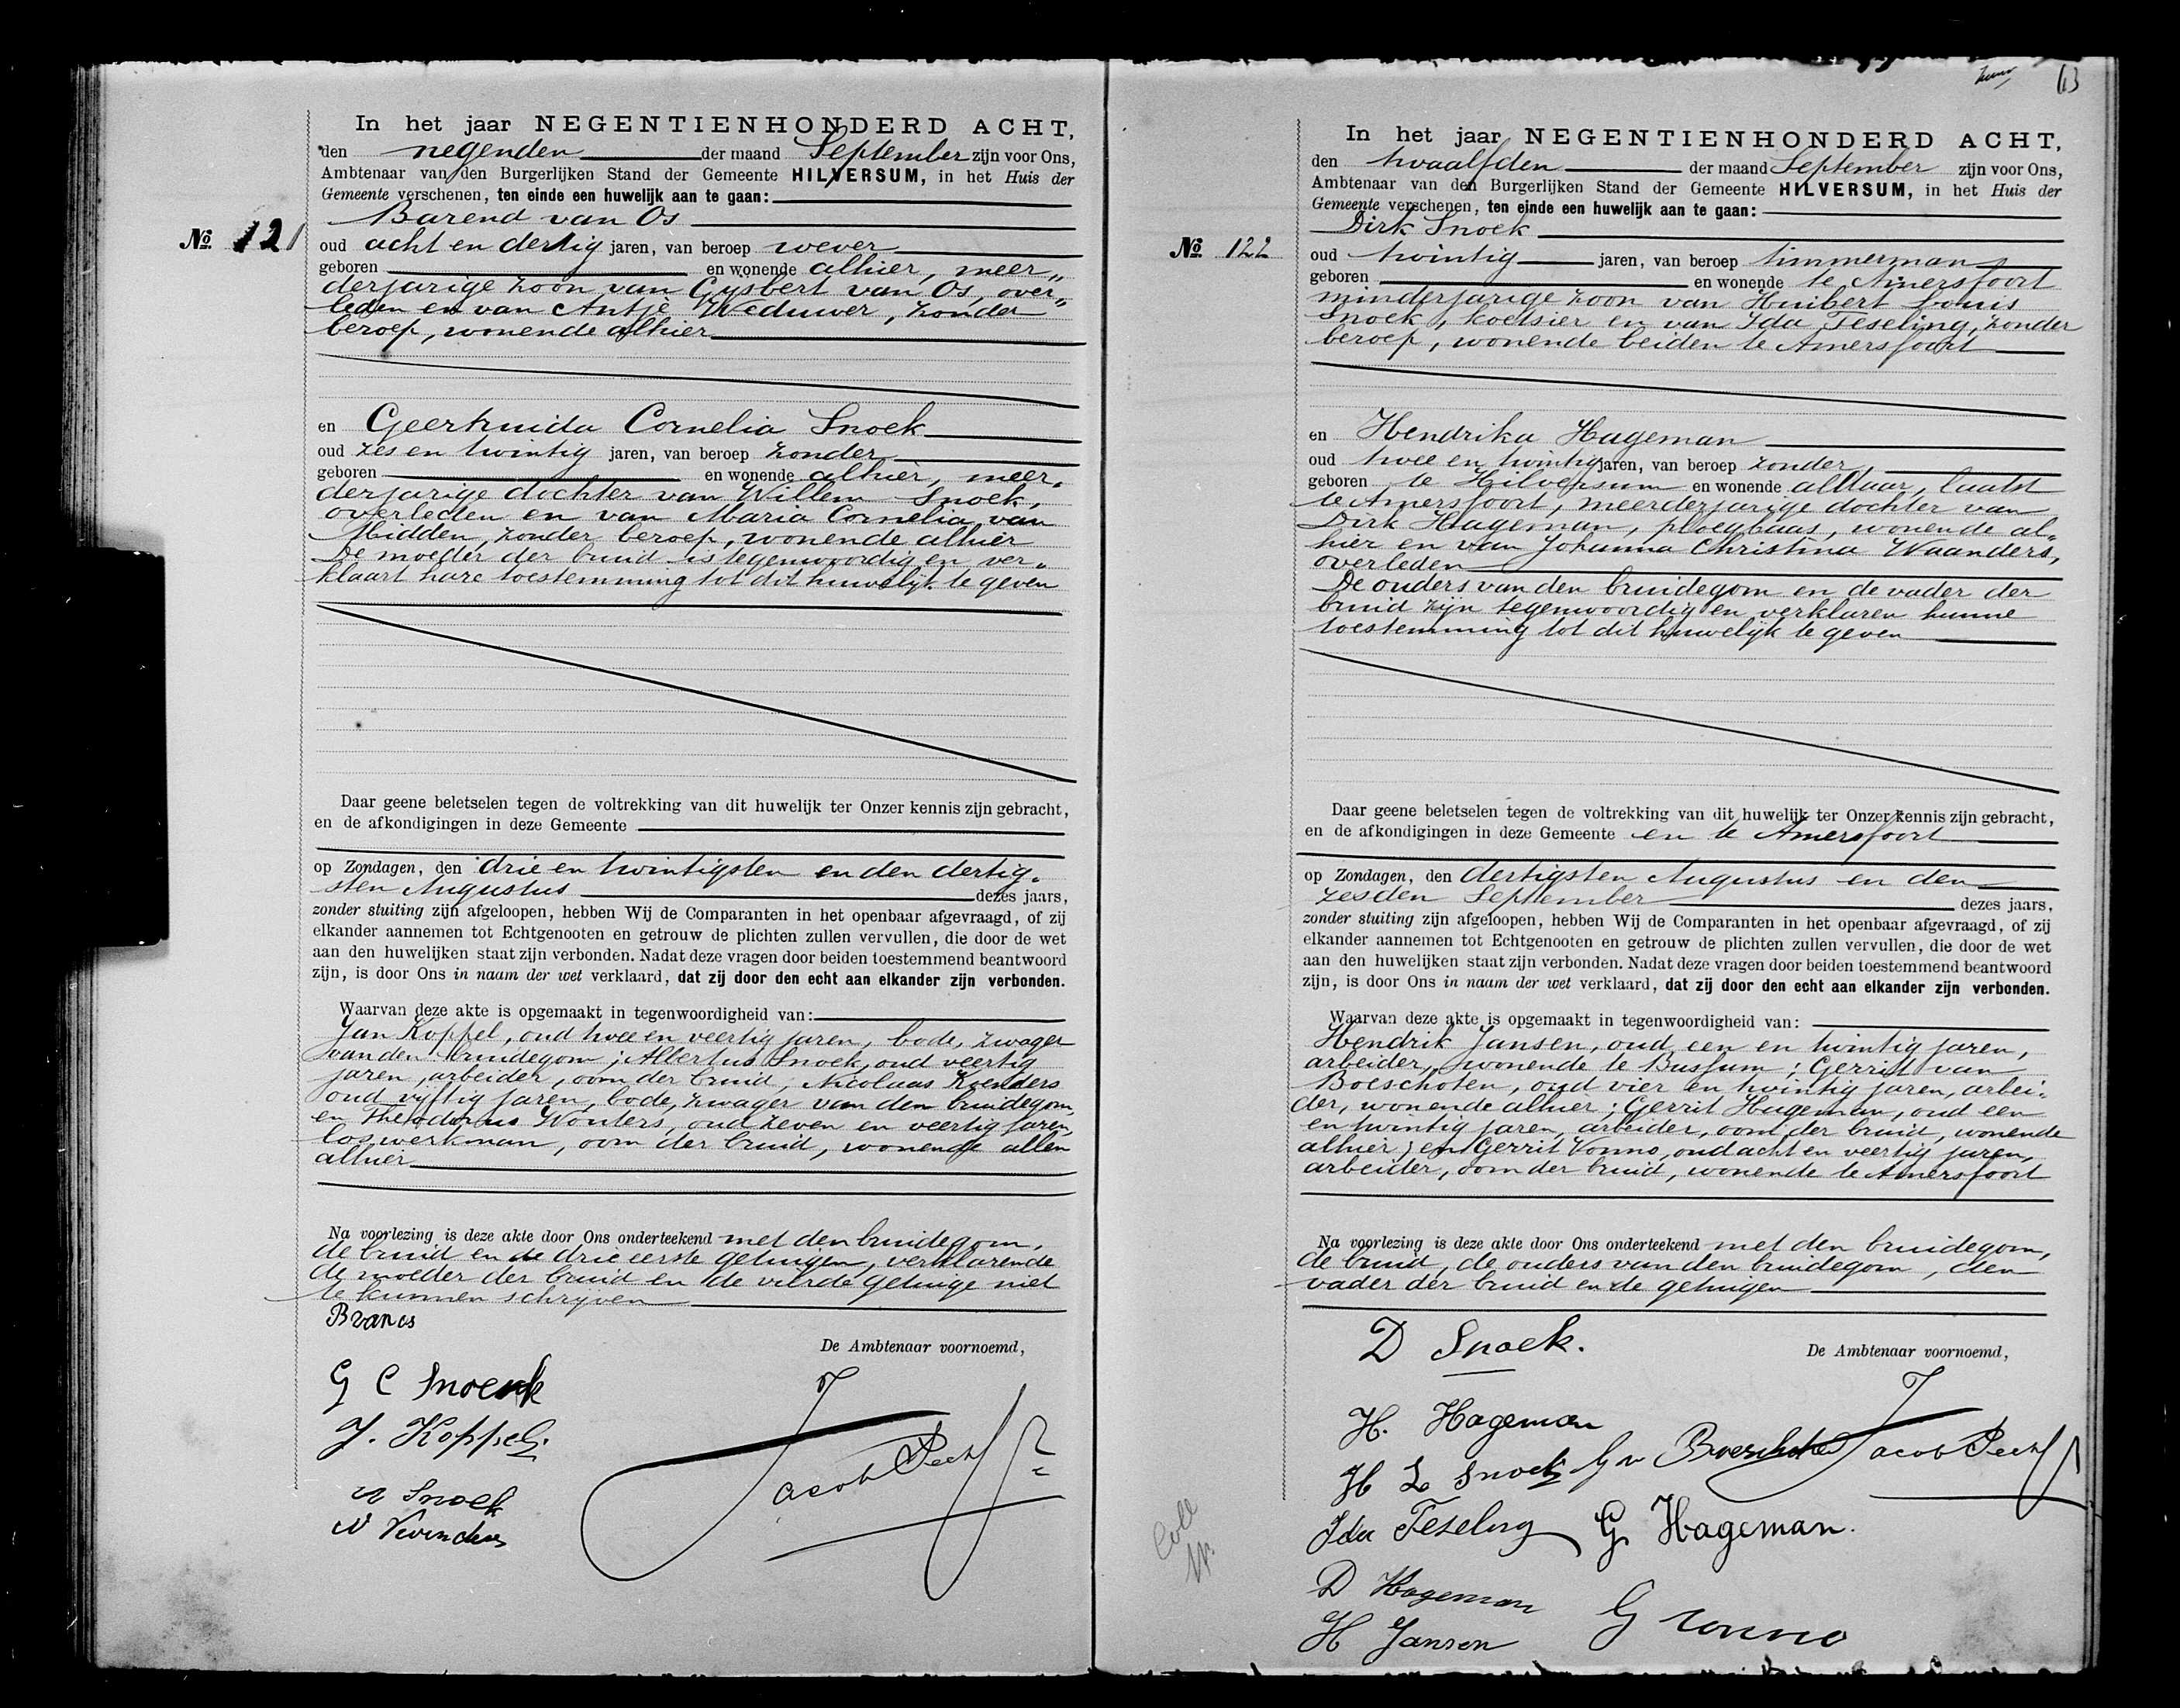 In het jaar NEGENTIENHONDERD ACHT,
den negenden der maand September zijn voor Ons,
Ambtenaar van den Burgerlijken Stand der Gemeente HILVERSUM, in het Huis der
Gemeente verschenen, ten einde een huwelijk aan te gaan:
Barend van Os
No. 121
oud acht en dertig jaren, van beroep wever
geboren en wonende alhier, meer„
derjarige zoon van Gysbert van Os, over„
leden en van Antje Weduwer, zonder
beroep, wonende alhier
en Geertruida Cornelia Snoek
oud zes en twintig jaren, van beroep zonder
geboren en wonende alhier, meer„
derjarige dochter van Willem Snoek,
overleden en van Maria Cornelia van
Midden, zonder beroep, wonende alhier
De moeder der bruid is tegenwoordig en ver„
klaart hare toestemming tot dit huwelijk te geven
Daar geene beletselen tegen de voltrekking van dit huwelijk ter Onzer kennis zijn gebracht,
en de afkondigingen in deze Gemeente
op Zondagen, den drie en twintigsten en den dertig„
sten Augustus dezes jaars,
zonder stuiting zijn afgeloopen, hebben Wij de Comparanten in het openbaar afgevraagd, of zij
elkander aannemen tot Echtgenooten en getrouw de plichten zullen vervullen, die door de wet
aan den huwelijken staat zijn verbonden. Nadat deze vragen door beiden toestemmend beantwoord
zijn, is door Ons in naam der wet verklaard, dat zij door den echt aan elkander zijn verbonden.
Waarvan deze akte is opgemaakt in tegenwoordigheid van:
Jan Koppel, oud twee en veertig jaren, bode, zwager
van den bruidegom; Albertus Snoek, oud veertig
jaren, arbeider, oom der bruid; Nicolaas Koenders
oud vyftig jaren, bode, zwager van den bruidegom,
en Theodorus Wouters, oud zeven en veertig jaren,
los werkman, oom der bruid, wonende allen
alhier
Na voorlezing is deze akte door Ons onderteekend met den bruidegom,
de bruid en de drie eerste getuigen, verklarende
de moeder der bruid en de vierde getuige niet
te kunnen schrijven
B van os
De Ambtenaar voornoemd,
G C Snoek
J. Koppel
Jacob Pech
A Snoek
N
63
In het jaar NEGENTIENHONDERD ACHT,
den twaalfden der maand September zijn voor Ons,
Ambtenaar van den Burgerlijken Stand der Gemeente HILVERSUM, in het Huis der
Gemeente verschenen, ten einde een huwelijk aan te gaan:
Dirk Snoek
No. 122
oud twintig jaren, van beroep timmerman
geboren en wonende te Amersfoort
minderjarige zoon van Huibert Louis
Snoek, koetsier en van Ida Teseling, zonder
beroep, wonende beiden te Amersfoort
en Hendrika Hageman
oud twee en twintig jaren, van beroep zonder,
geboren te Hilversum en wonende aldaar, laatst
te Amersfoort, meerderjarige dochter van
Dirk Hageman, ploegbaas, wonende al„
hier en van Johanna Christina Waanders,
overleden
De ouders van den bruidegom en de vader der
bruid zijn tegenwoordig en verklaren hunne
toestemming tot dit huwelijk te geven
Daar geene beletselen tegen de voltrekking van dit huwelijk ter Onzer kennis zijn gebracht,
en de afkondigingen in deze Gemeente en te Amersfoort
op Zondagen, den dertigsten Augustus en den
zesden September dezes jaars,
zonder stuiting zijn afgeloopen, hebben Wij de Comparanten in het openbaar afgevraagd, of zij
elkander aannemen tot Echtgenooten en getrouw de plichten zullen vervullen, die door de wet
aan den huwelijken staat zijn verbonden. Nadat deze vragen door beiden toestemmend beantwoord
zijn, is door Ons in naam der wet verklaard, dat zij door den echt aan elkander zijn verbonden.
Waarvan deze akte is opgemaakt in tegenwoordigheid van:
Hendrik Jansen, oud een en twintig jaren,
arbeider, wonende te Bussum; Gerrit van
Boeschoten, oud vier en twintig jaren, arbei„
der, wonende alhier; Gerrit Hageman, oud een
en twintig jaren, arbeider, oom der bruid, wonende
alhier; en Gerrit Vonno, oud acht en veertig jaren,
arbeider, oom der bruid, wonende te Amersfoort
Na voorlezing is deze akte door Ons onderteekend met den bruidegom,
de bruid, de ouders van den bruidegom, den
vader der bruid en de getuigen
D Snoek.
De Ambtenaar voornoemd,
H. Hageman
H L Snoek G v Boeschoten Jacob Pech
Ida Teseling G Hageman.
D Hageman
H Jansen G vonno
Coll